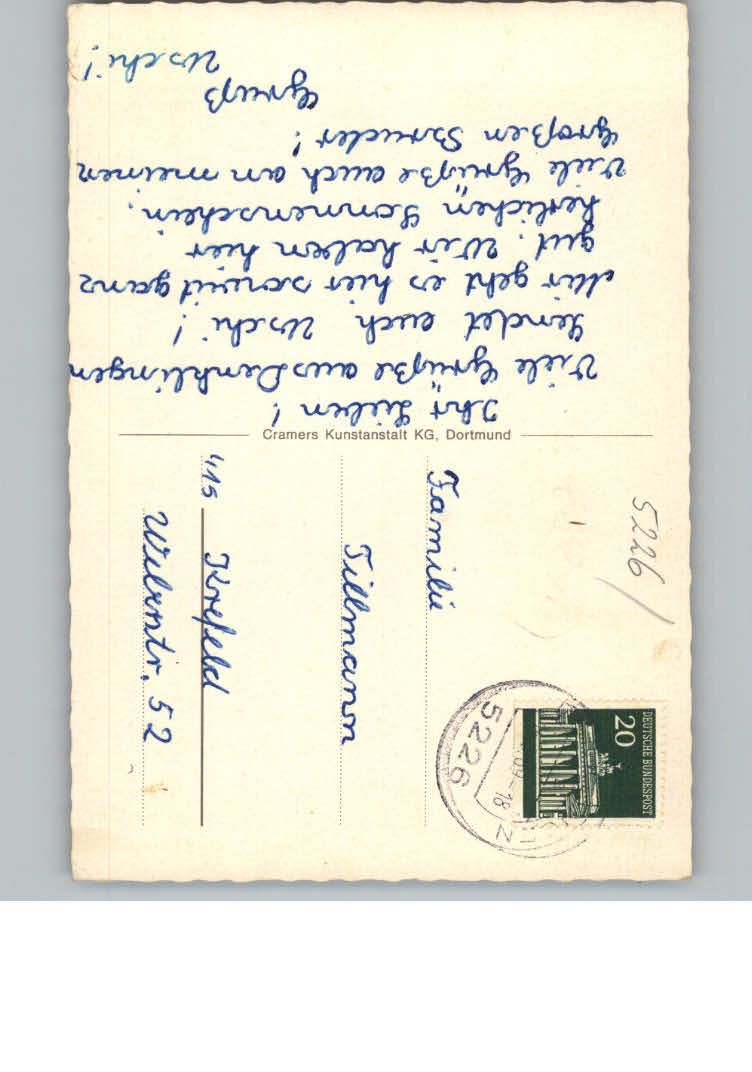 Ihr Lieben!
Viele Grüße aus Denklingen
sendet euch Uschi!
Mir geht es hier soweit ganz
gut. Wir haben hier
herlichen Sonnenschein.
Viele Grüße auch an meinen
Großen Bruder!
Gruß
Uschi!
Cramers Kunstanstalt KG, Dortmund
Familie
Tillmann
415 Krefeld
Weberstr. 52
5226
DEUTSCHE BUNDESPOST
20
5226